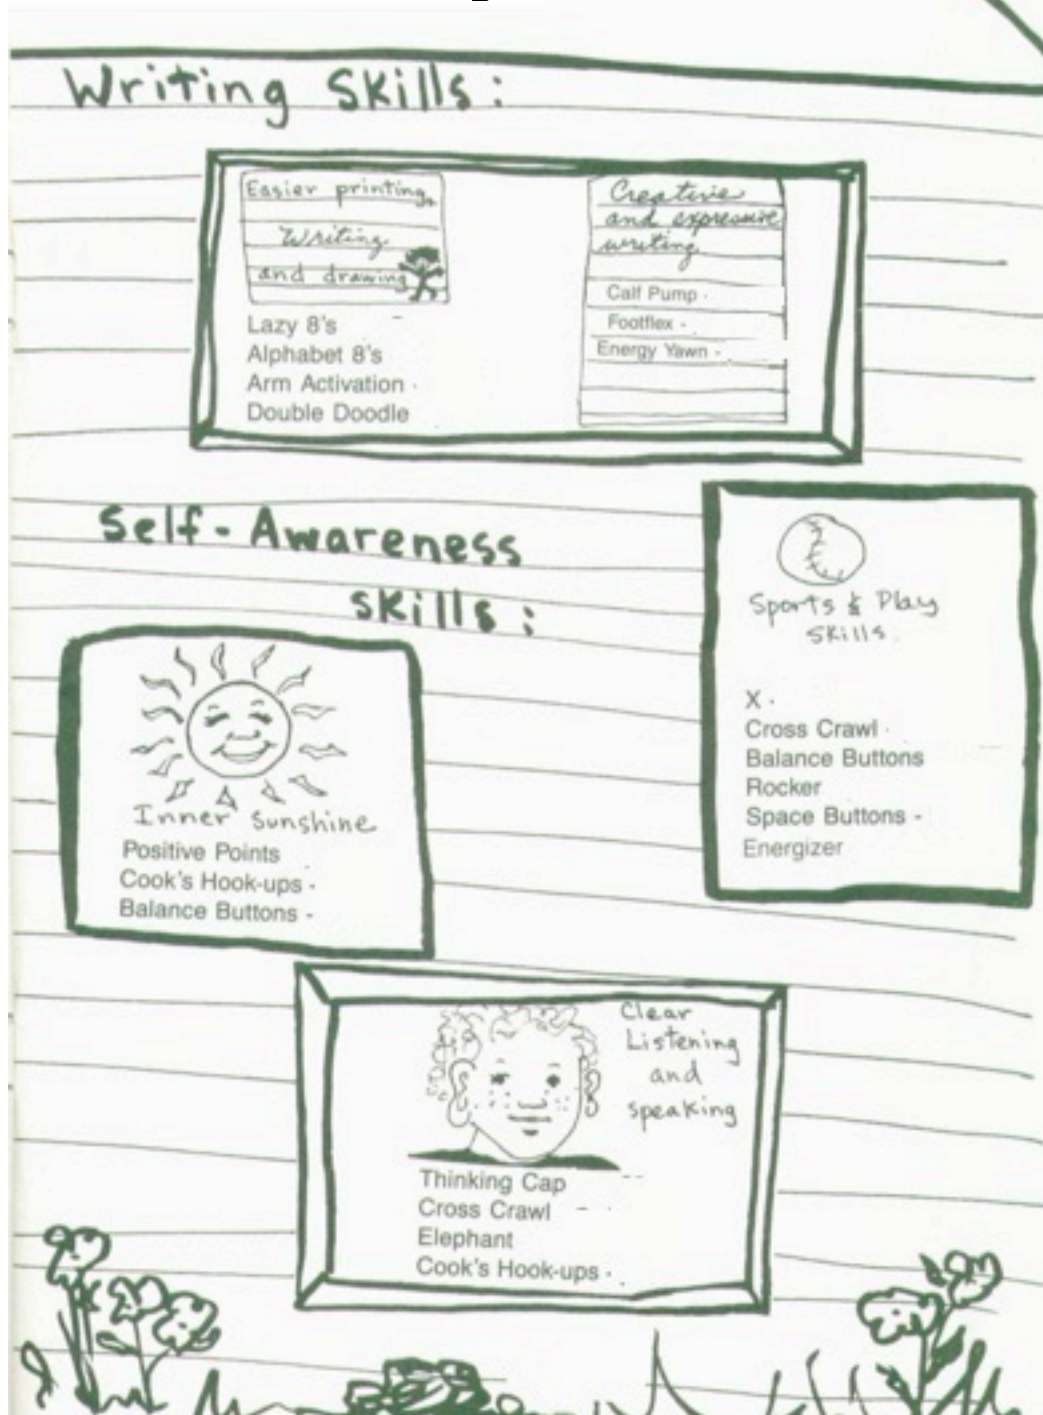 Writing Skills:
Easier printing,
Writing
and drawing
Lazy 8's
Alphabet 8's
Arm Activation
Double Doodle
Creative
and expressive
writing
Calf Pump
Footflex -
Energy Yawn -
Self-Awareness
Skills:
Sports & Play
Skills.
X
Cross Crawl
Balance Buttons
Rocker
Space Buttons -
Energizer
Inner Sunshine
Positive Points
Cook's Hook-ups -
Balance Buttons -
Clear
Listening
and
speaking
Thinking Cap
Cross Crawl -
Elephant
Cook's Hook-ups